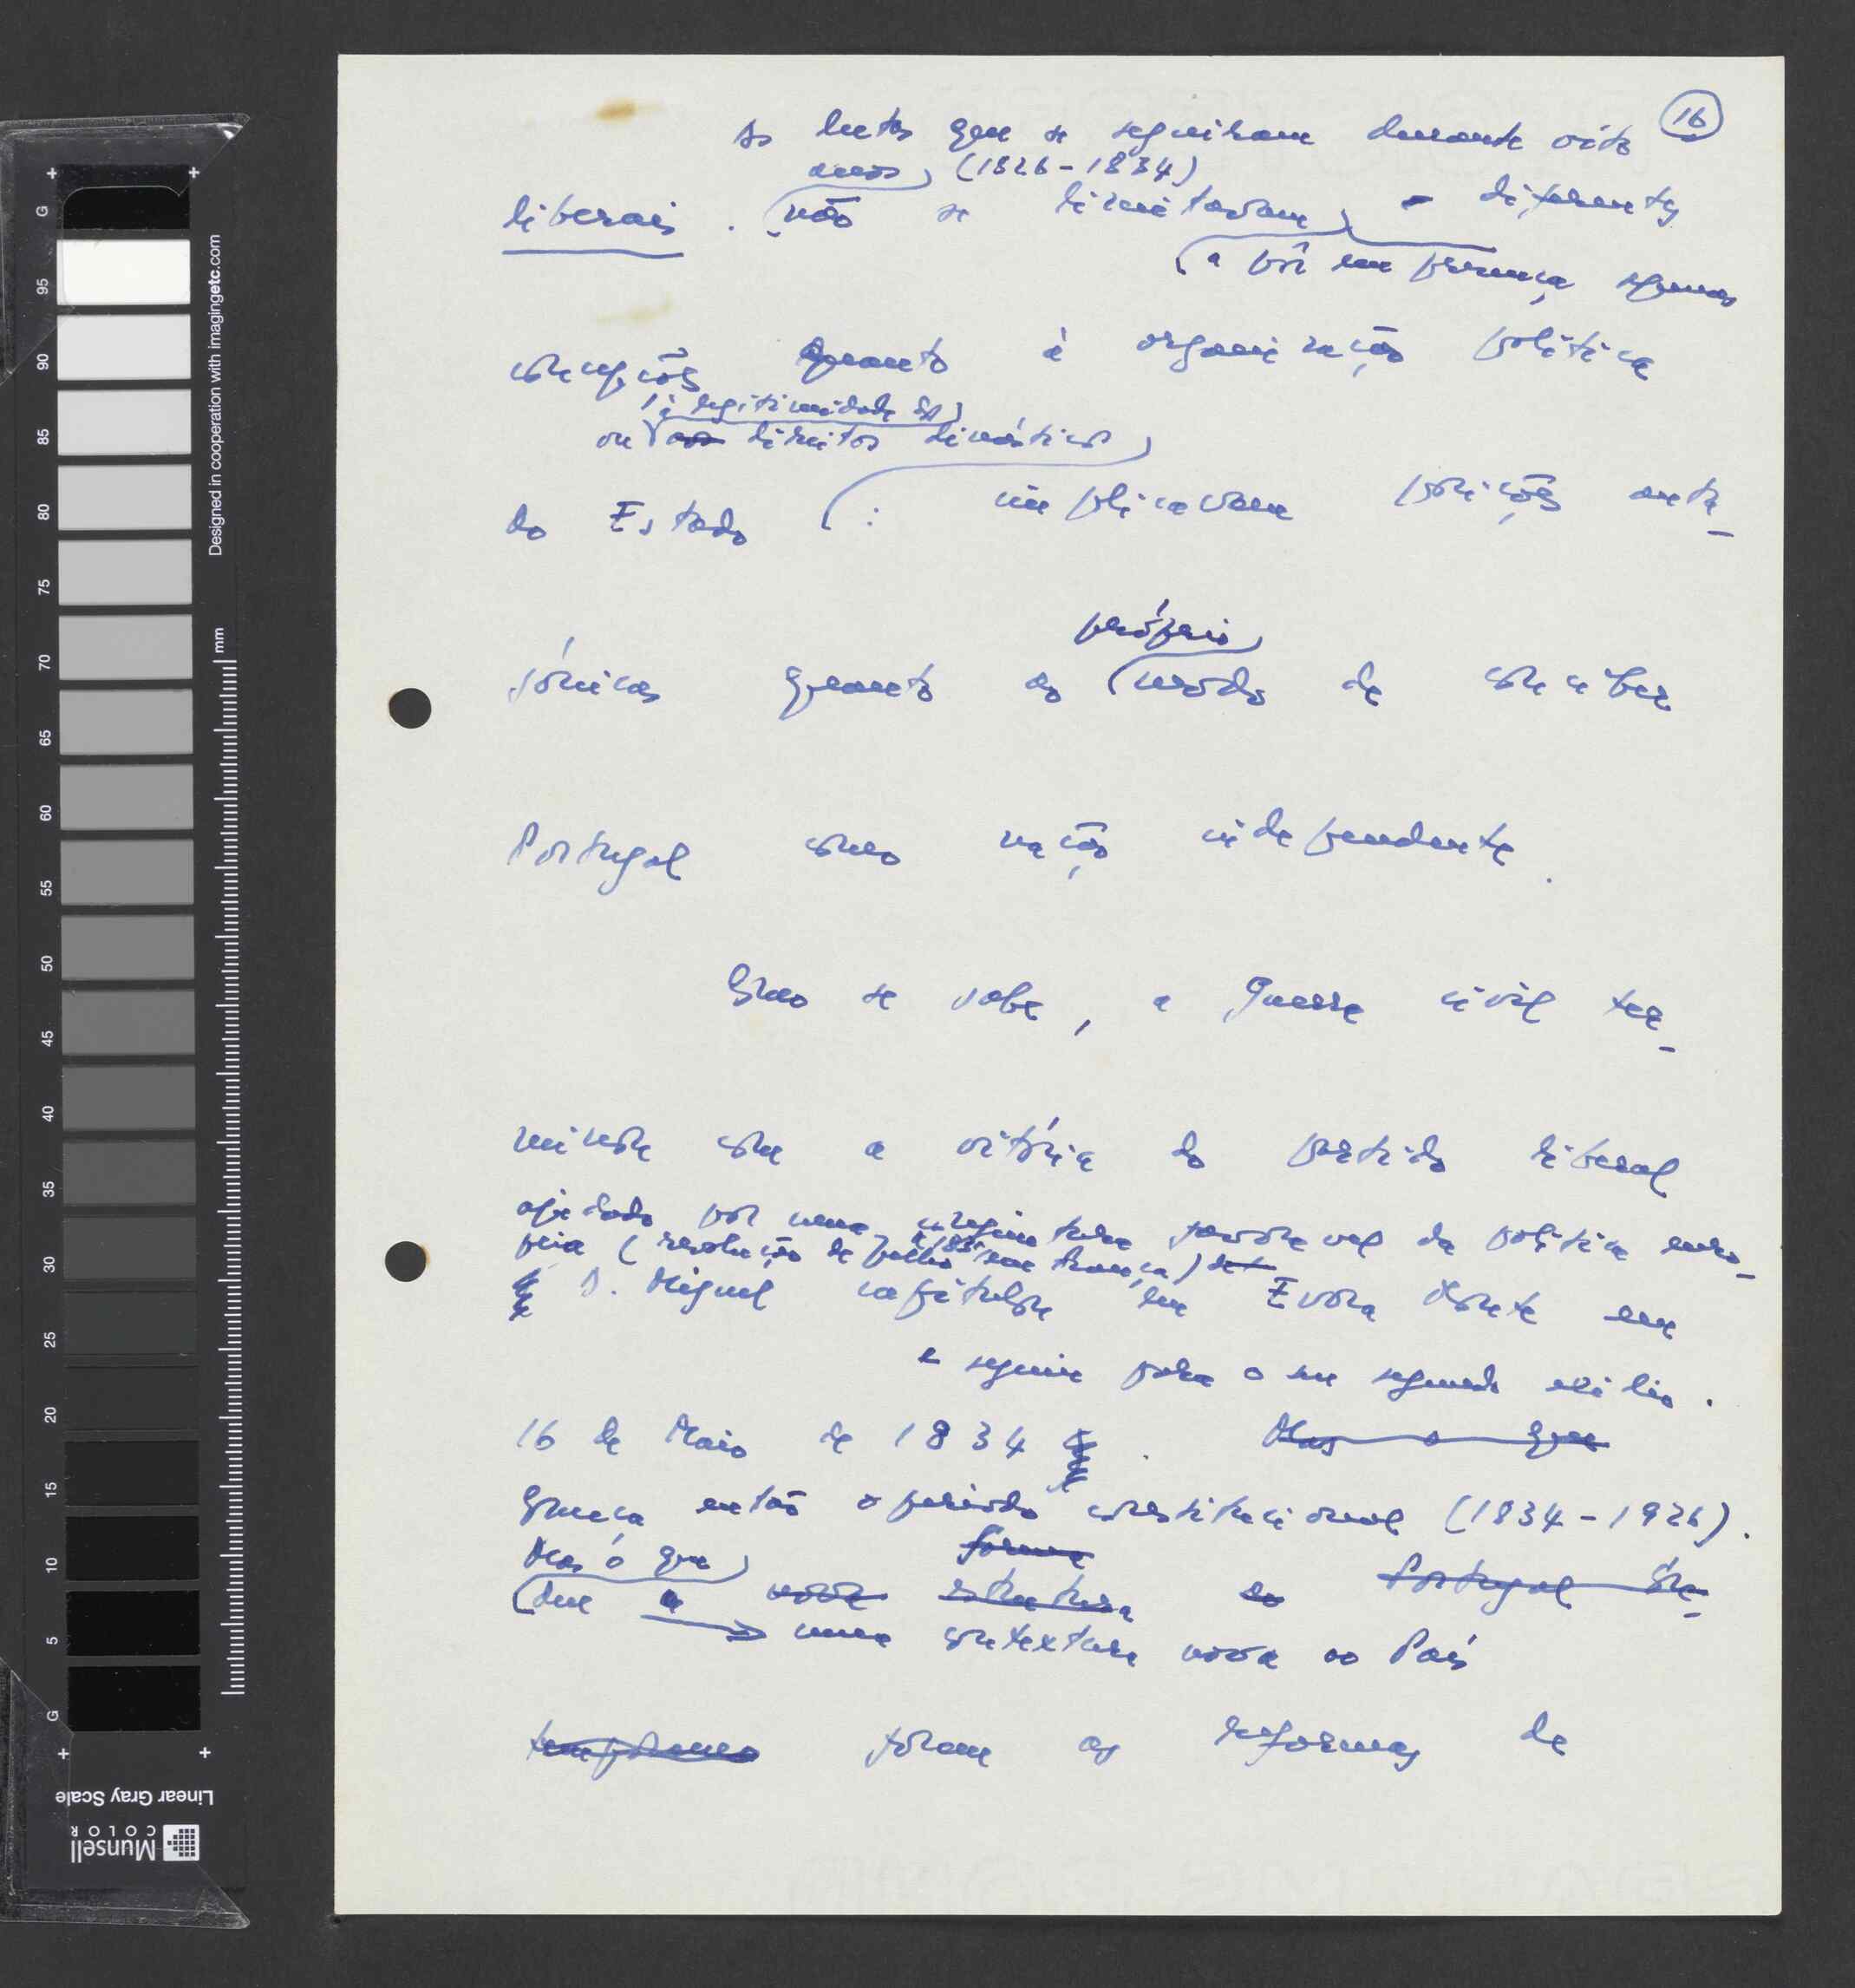 16
As lutas que se seguiram durante oito
anos (1826-1834)
liberais. não se limitavam a diferentes
a pôr em presença
concepções quanto à organização política
à legitimidade de
ou aos direitos dinásticos
do Estado : implicavam posições anta-
gónicas quanto ao modo de conceber
próprio
Portugal como nação independente.
Como se sabe, a guerra civil ter-
minou com a vitória do partido liberal
ajudado por uma conjuntura favorável da política euro-
peia (revolução de Julho 1830 em França)
e D. Miguel capitulou em Évora Monte em
e seguiu para o seu segundo exílio.
16 de Maio de 1834. Mas o que
Começa então o período constitucional (1834-1926).
Mas o que forma
deu a nova estrutura ao Portugal Con-
uma contextura nova ao País
temporâneo foram as reformas de
Designed in cooperation with imagingetc.com
mm
G 95 90 85 80 75 70 65 60 55 50 45 40 35 30 25 20 15 10 5 G
Linear Gray Scale
Munsell
COLOR